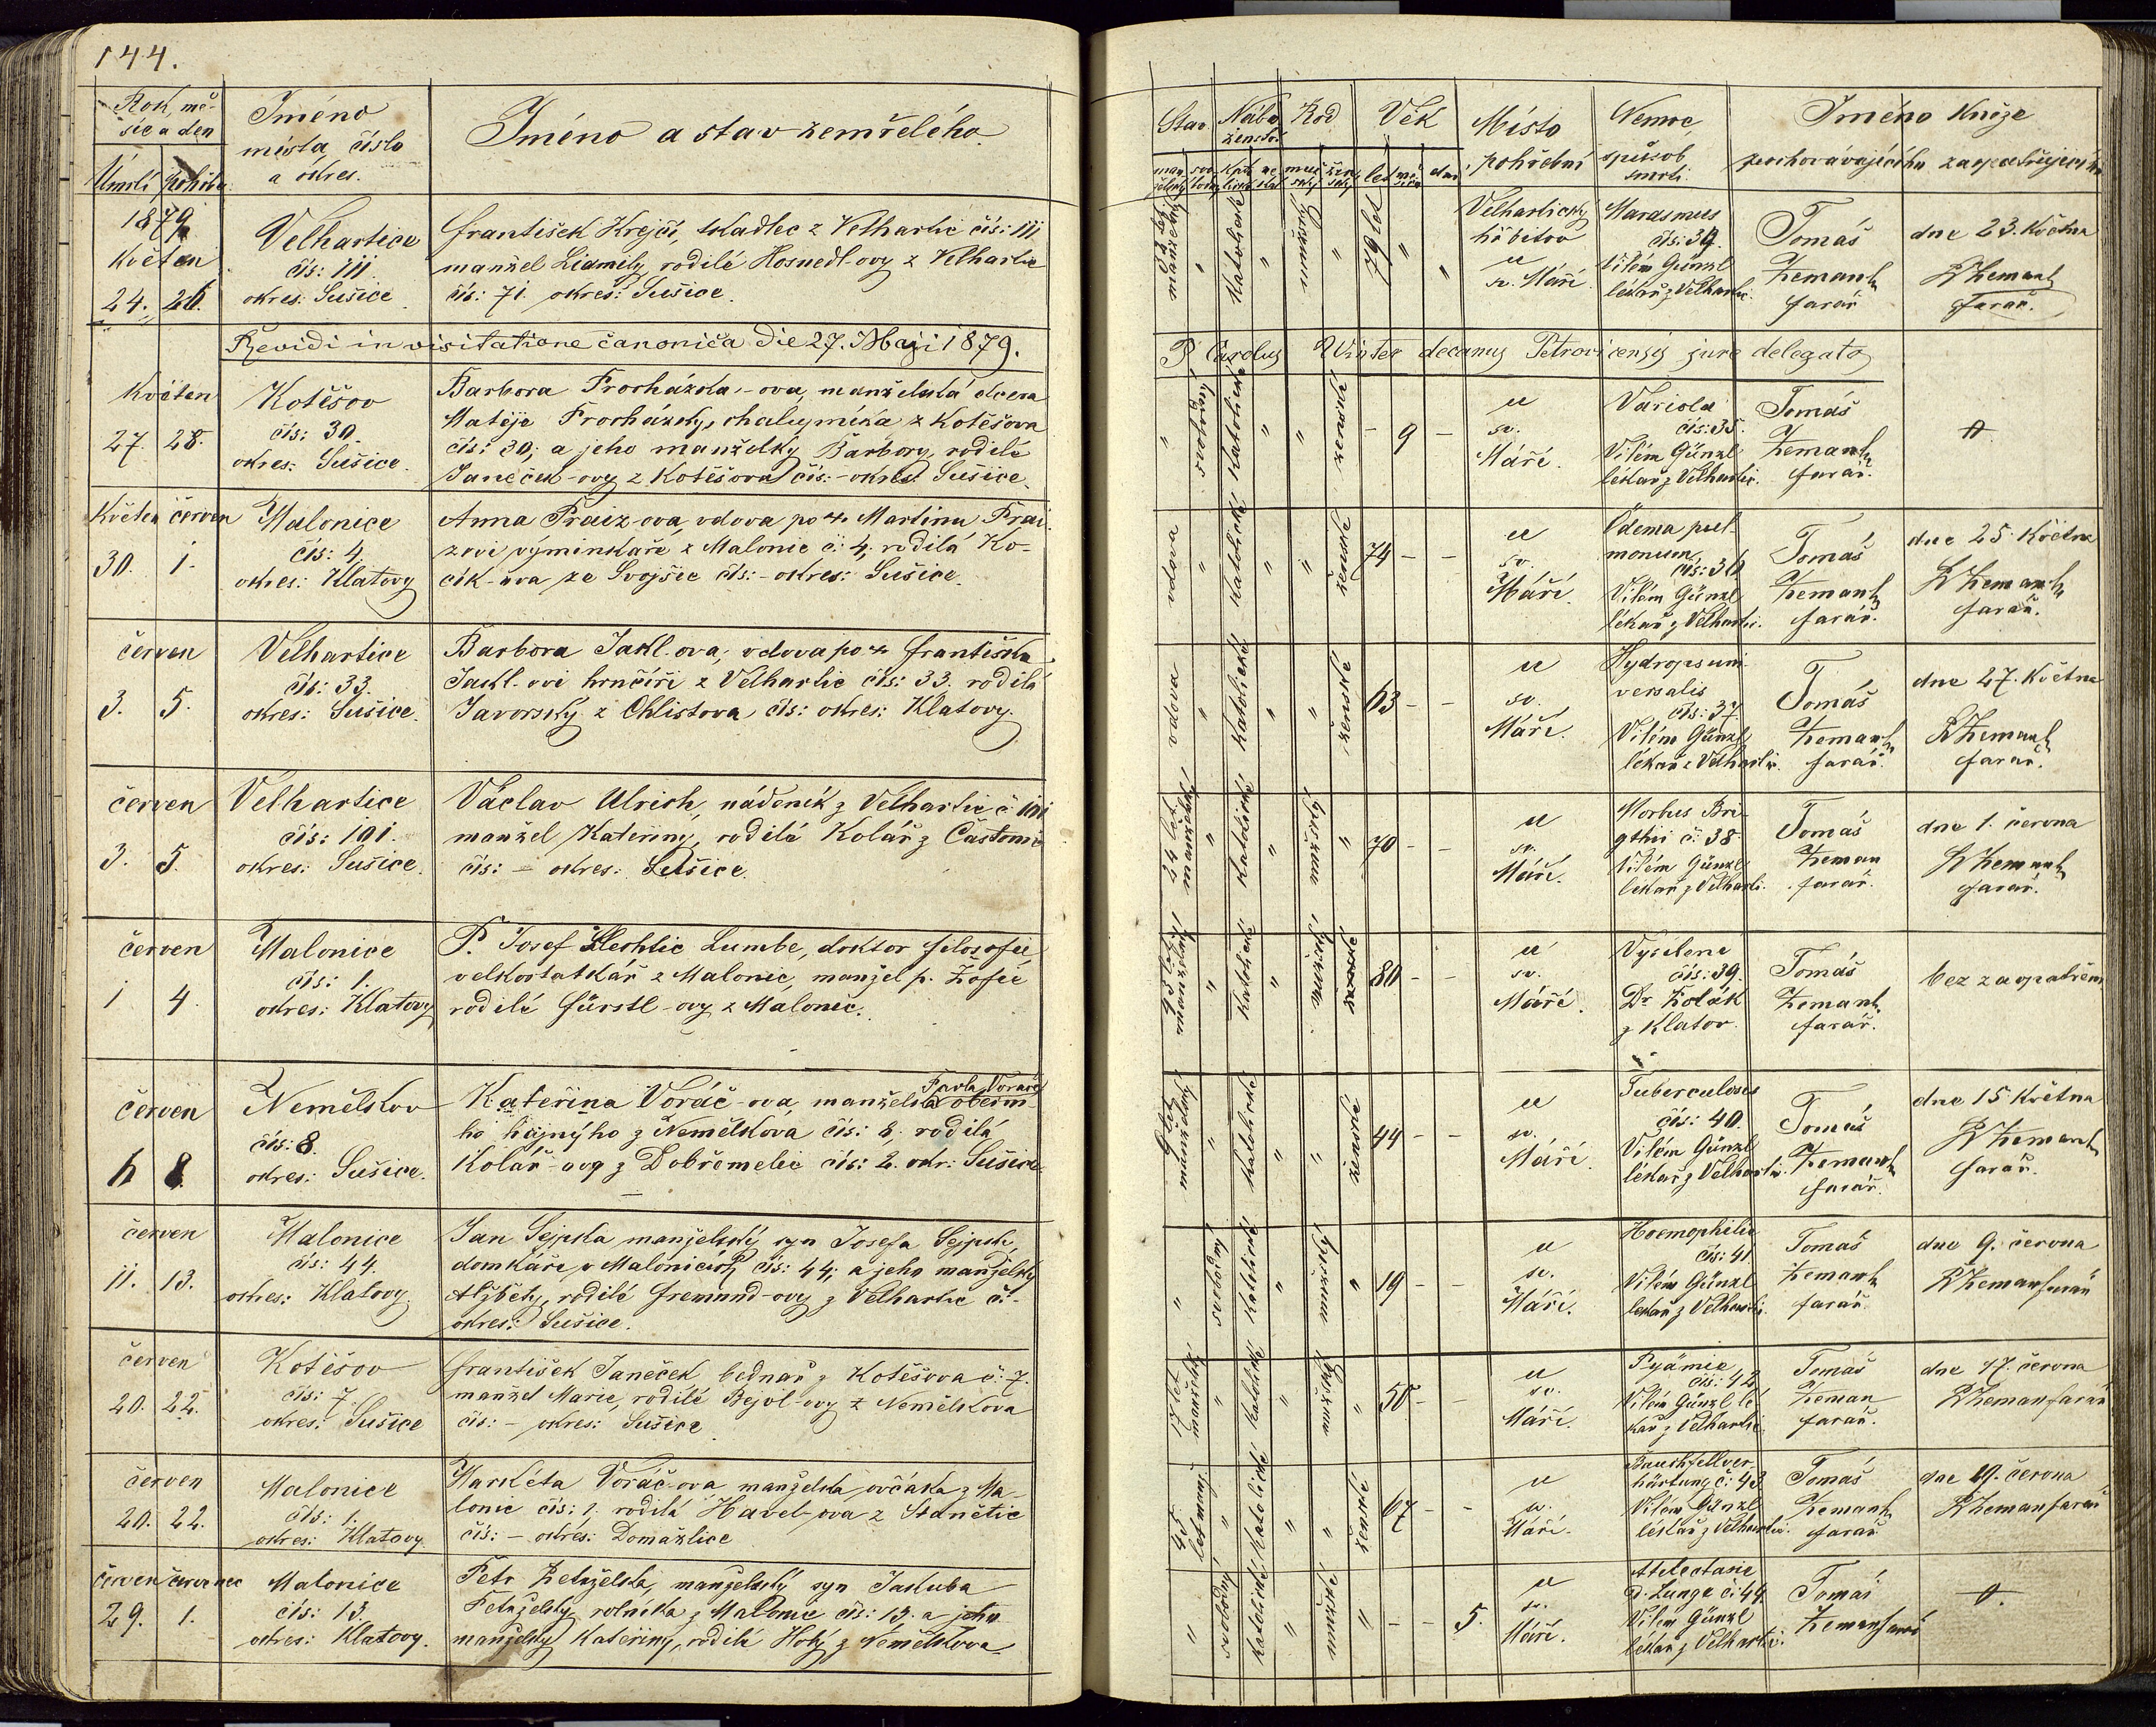 144.
Rok, mě-
síc a den
Úmrtí pohřbu
Jméno
místa, číslo
a okres.
Jméno a stav zemřelého.
1879
Květen
24. 26.
Velhartice
čís: 111
okres: Sušice
František Krejčí, tkadlec z Velhartic čís: 111
manžel Lidmily, rodilé Hosnedl-ovy z Velhartic
čís: 71. okres: Sušice.
Revidi in visitatione canonica die 27. Maji 1879.
Květen
27. 28.
Kotěšov
čís: 30.
okres: Sušice.
Barbora Procházka-ova, manželská dcera
Matěje Procházky, chalupníka z Kotěšova
čís: 30; a jeho manželky Barbory, rodilé
Janeček-ovy z Kotěšova čís: - okres Sušice.
Květen červen
30. 1.
Malonice
čís: 4.
okres: Klatovy
Anna Fraiz-ova, vdova po + Martinu Frai-
zovi výminkáři z Malonic č: 4; rodilá Ko-
cík-ova ze Svojšic čís: - okres: Sušice.
červen
3. 5.
Velhartice
čís: 33.
okres: Sušice.
Barbora Jakl-ova, vdova po + Františku
Jakl-ovi hrnčíři z Velhartic čís: 33. rodilá
Javorský z Chlistova, čís: okres: Klatovy.
červen
3. 5.
Velhartice
čís: 101.
okres: Sušice.
Václav Ulrich, nádeník z Velhartic č: 101
manžel Kateřiny, rodilé Kolář z Častonic
čís: - okres: Sušice.
červen
1 4.
Malonice
čís: 1.
okres: Klatovy
P. Josef Lumbe, doktor filosofie
velkostatkář z Malonic, manžel p. Žofie
rodilé Fürstl-ovy z Malonic.
červen
6 8.
Nemělkov
čís: 8.
okres: Sušice.
Pavla Voráče
Kateřina Voráč-ova, manželka obecní-
ho hajného z Nemělkova čís: 8. rodilá
Kolář-ovy z Dobřemelic čís: 2. okr: Sušice
červen
11. 13.
Malonice
čís: 44.
okres: Klatovy
Jan Sejpka manželský syn Josefa Sejpk
domkáře v Malonicích čís: 44; a jeho manželky
Alžběty, rodilé Fremund-ovy z Velhartic č: -
okres: Sušice.
červen
20. 22.
Kotěšov
čís: 7.
okres: Sušice
František Janeček, bednář z Kotěšova č: 7.
manžel Marie, rodilé Bejvl-ovy z Nemělkova
čís: - okres: Sušice
červen
20. 22.
Malonice
čís: 1.
okres: Klatovy.
Markéta Voráč-ova manželka ovčáka z Ma-
lonic čís: 1; rodilá Havel-ova z Stanětic
čís: - okres: Domažlice
červen červenec
29. 1.
Malonice
čís: 13.
okres: Klatovy.
Petr manželský syn Jakuba
rolníka z Malonic čís: 13. a jeho
manželky Kateřiny, rodilé Holý z Nemělkova
Stav
Nábo-
ženství
Rod
Věk
Místo
pohřební
Nemoc,
způsob
smrti.
Jméno kněze
pochovávajícího zaopatřujícího
man-
želský
svo-
bodný
kato-
lické
muž-
ský
žen-
ský
let mě-
síců dní
manželský
Katolické
mužský
79 let
Velhartický
hřbitov
u
sv. Máří
Marasmus
čís: 34.
Vilém Günzl
lékař z Velhartic.
Tomáš
Zemank
farář
dne 23. Května
Zemank
farář.
P. Carolus Winter decanus Petrovicensis jure delegato
svobodný
Katolické
ženské
- 9 -
u
sv.
Máří.
Variola
čís: 35.
Vilém Günzl
lékař z Velhartic.
Tomáš
Zemank
farář.
vdova
Katolické
ženské
74 - -
u
sv.
Máří.
Ödema pul-
monum,
čís: 36
Vilém Günzl
lékař z Velhartic.
Tomáš
Zemank
farář.
dne 25. Května
Zemank
farář.
vdova
Katolické
ženské
63 - -
u
sv.
Máří.
Hydrops uni-
versalis
čís: 37.
Vilém Günzl
lékař z Velhartic.
Tomáš
Zemank
farář.
dne 27. Května
Zemank
farář.
24 let
manželský
Katolické
mužský
70 - -
u
sv.
Máří.
Morbus Bri-
gthii č: 38.
Vilém Günzl
lékař z Velharti.
Tomáš
Zeman
farář.
dne 1. června
Zemank
farář.
manželský
Katolické
mužský
80 - -
u
sv.
Máří.
Vysílení
čís: 39.
Dr. Kolák
z Klatov.
Tomáš
Zemank
farář.
bez zaopatření
9 let
manželský
Katolické
ženské
44 - -
u
sv.
Máří.
Tuberculoses
čís: 40.
Vilém Günzl
lékař z Velhartic.
Tomáš
Zemank
farář.
dne 15. Května
Zemank
farář.
svobodný
Katolické
mužský
19 - -
u
sv.
Máří.
Hoemophilie
čís: 41.
Vilém Günzl
lékař z Velharti.
Tomáš
Zemank
farář.
dne 9. června
Zeman farář
17 let
manželský
Katolické
mužský
50 - -
u
sv.
Máří.
Pyämie
čís: 42.
Vilém Günzl lé-
kař z Velhartic
Tomáš
Zeman
farář.
dne 17. června
Zeman farář
45
let manž.
Katolické
ženské
67 - -
u
sv.
Máří.
Bauchfellver-
härtung č: 43
Vilém Günzl
lékař z Velhartic.
Tomáš
Zemank
farář
dne 19. června
Zeman farář
svobodný
Katolické
mužské
- - 5.
u
sv.
Máří.
Atelectasie
d. Lunge č: 44
Vilém Günzl
lékař z Velharti.
Tomáš
Zeman farář